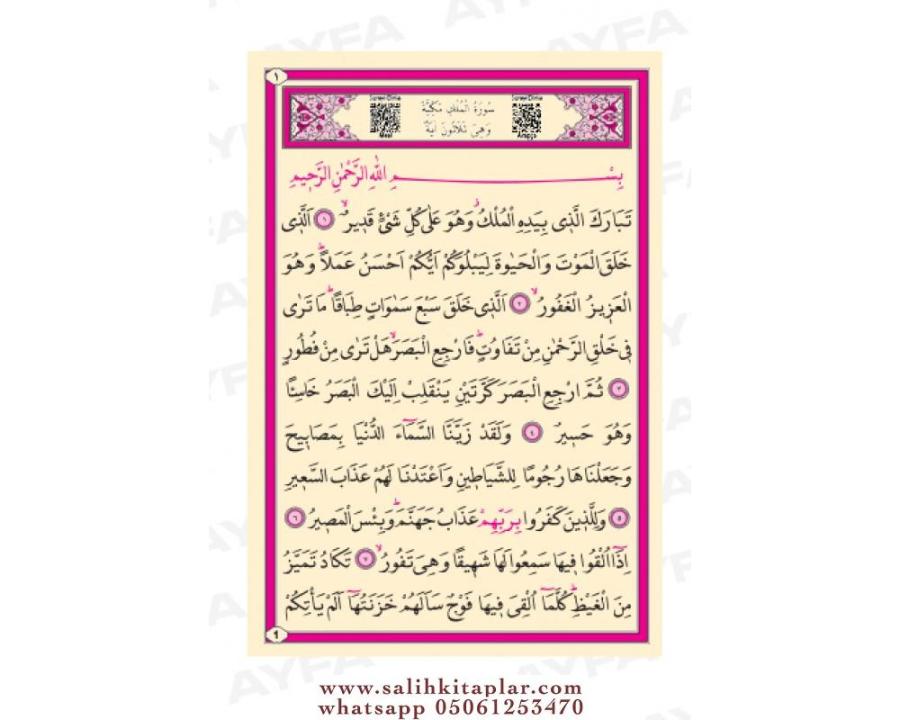 ١
سُورَةُ الْمُلْكِ مَكِّيَّةٌ
وَهِيَ ثَلَاثُونَ اٰيَةً
Meal
Arapça
بِسْمِ اللّٰهِ الرَّحْمٰنِ الرَّحِيمِ
تَبَارَكَ الَّذِى بِيَدِهِ الْمُلْكُۘ وَهُوَ عَلٰى كُلِّ شَىْءٍ قَدِيرٌۙ ﴿١﴾ اَلَّذِى
خَلَقَ الْمَوْتَ وَالْحَيٰوةَ لِيَبْلُوَكُمْ اَيُّكُمْ اَحْسَنُ عَمَلاًۜ وَهُوَ
الْعَزِيزُ الْغَفُورُۙ ﴿٢﴾ اَلَّذِى خَلَقَ سَبْعَ سَمٰوَاتٍ طِبَاقًاۜ مَا تَرٰى
فِى خَلْقِ الرَّحْمٰنِ مِنْ تَفَاوُتٍۜ فَارْجِعِ الْبَصَرَۙ هَلْ تَرٰى مِنْ فُطُورٍ
﴿٣﴾ ثُمَّ ارْجِعِ الْبَصَرَ كَرَّتَيْنِ يَنْقَلِبْ اِلَيْكَ الْبَصَرُ خَاسِئًا
وَهُوَ حَسِيرٌ ﴿٤﴾ وَلَقَدْ زَيَّنَّا السَّمَٓاءَ الدُّنْيَا بِمَصَابِيحَ
وَجَعَلْنَاهَا رُجُومًا لِلشَّيَاطِينِ وَاَعْتَدْنَا لَهُمْ عَذَابَ السَّعِيرِ
﴿٥﴾ وَلِلَّذِينَ كَفَرُوا بِرَبِّهِمْ عَذَابُ جَهَنَّمَۜ وَبِئْسَ الْمَصِيرُ ﴿٦﴾
اِذَٓا اُلْقُوا فِيهَا سَمِعُوا لَهَا شَهِيقًا وَهِىَ تَفُورُۙ ﴿٧﴾ تَكَادُ تَمَيَّزُ
مِنَ الْغَيْظِۜ كُلَّمَٓا اُلْقِىَ فِيهَا فَوْجٌ سَاَلَهُمْ خَزَنَتُهَٓا اَلَمْ يَأْتِكُمْ
1
AYFA
www.salihkitaplar.com
whatsapp 05061253470